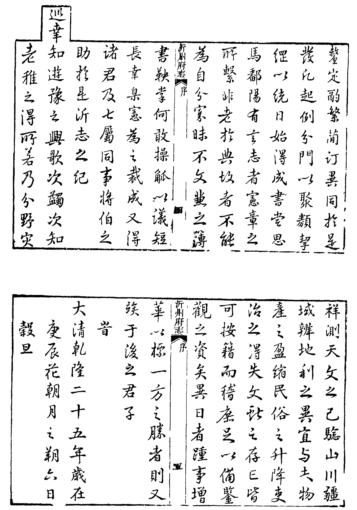 釐定酌繁簡訂異同於是
發凡起例分門以聚類挈
綱以統目始得成書嘗思
馬鄱陽有言志者憲章之
所繫非老於典故者不能
沂州府志 序 四
為自分寡昧不文兼之簿
書鞅掌何敢操觚以議短
長幸憲為之裁成又得
諸君及七屬同事將伯之
助於是沂志之紀
巡幸知遊豫之興歌次蠲次知
老稚之得所若乃分野災
祥測天文之已驗山川疆
域辨地利之異宜與夫物
產之盈縮民俗之升降吏
治之得失文獻之存亡皆
可按籍而稽庶足以備鑒
沂州府志 序 五
觀之資矣異日者踵事增
華以標一方之勝者則又
竢于後之君子
旹
大清乾隆二十五年歲在
庚辰花朝月之朔六日
穀旦